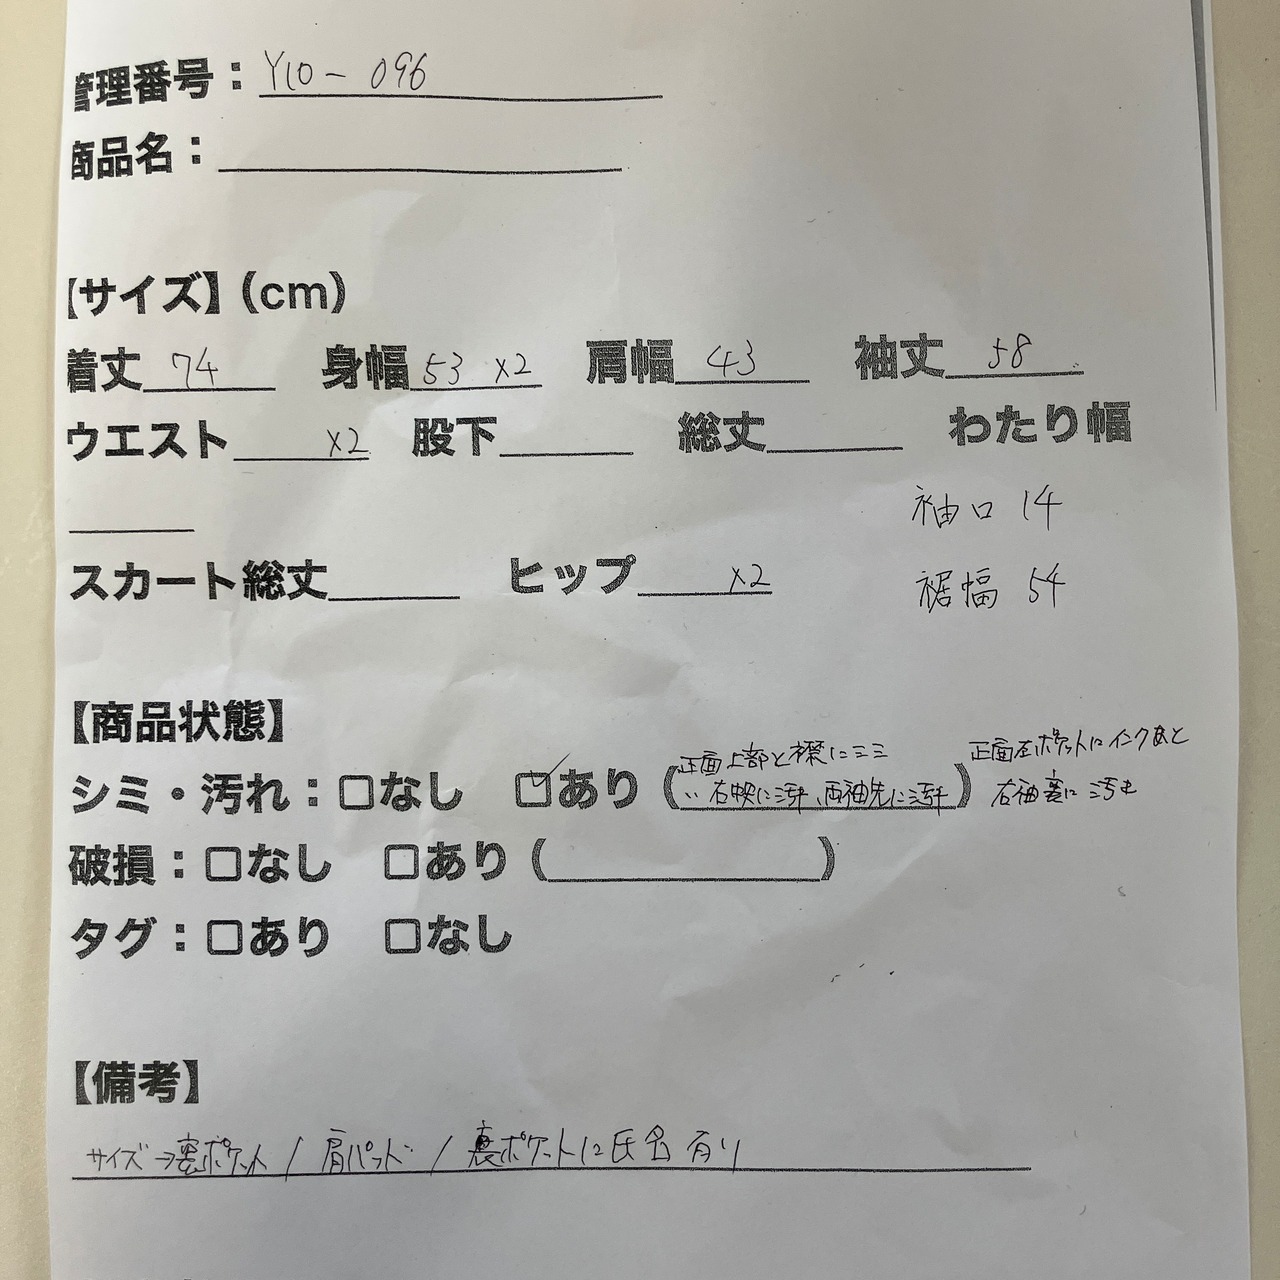 管理番号：Y10-096
商品名：
【サイズ】(cm)
着丈 74 身幅 53 ×2 肩幅 43 袖丈 58
ウエスト ×2 股下 総丈 わたり幅
袖口 14
スカート総丈 ヒップ ×2
裾幅 54
【商品状態】
正面上部と襟にシミ 正面左ポケットにインクあと
シミ・汚れ：□なし ☑あり（〃 右中央に汚れ、両袖先に汚れ） 右袖裏に汚れ
破損：□なし □あり（ ）
タグ：□あり □なし
【備考】
サイズ→裏ポケット / 肩パット / 裏ポケットに氏名有り